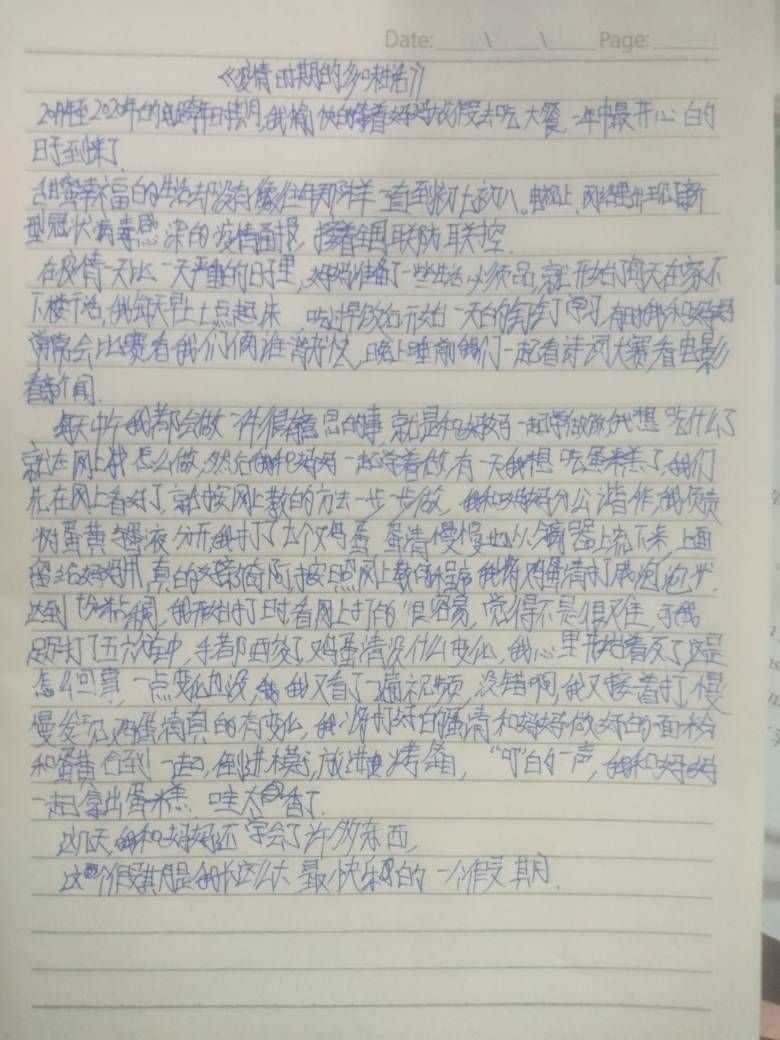 Date: \ \ Page:
《疫情时期的多味生活》
2019年至2020年的跨年时期,我愉快的等着妈妈放假去吃大餐,一年中最开心的
日子到来了.
甜蜜幸福的生活却没有像往年那样一直到初七初八。电视上,网络里出现了新
型冠状病毒感染的疫情通报,接着全国联防联控.
在疫情一天比一天严重的日子里,妈妈准备了一些生活必须品,就开始了每天在家不
下楼生活,我每天早上七点起床,吃过早饭后开始一天的学习,有时我和妈妈
常常会比赛看我们俩谁背好快,晚上睡前我们一起看诗词大赛看电影
看新闻.
每天中午我都会做一件很有意思的事,就是和妈妈一起学做饭,我想吃什么了
就在网上找怎么做,然后我和妈妈一起学着做,有一天我想吃蛋糕了,我们
先在网上看好了,就按网上教的方法一步一步做,我和妈妈分公谐作,我负责
树蛋黄与蛋液分开,我打了五个鸡蛋,蛋清慢慢地从分离器上流下来,上面
留给妈妈用,真的好神奇阿,按照网上教的程序我将鸡蛋清打成泡泡状.
达到粘稠,我开始打时看网上打的很容易,觉得不是很难,可我
足足打了五六分中,手都酉变了,鸡蛋清没什么变化,我心里开始着及了这是
怎么回事,一点变化也没,我又看了一遍视频,没错啊,我又接着打,慢
慢发现,鸡蛋清真的有变化,我将打好的蛋清和妈妈做好的面粉
和蛋黄合到一起,倒进模,放进烤箱,"叮"的一声,我和妈妈
一起拿出蛋糕,哇太香了.
这几天,我和妈妈还学会了许多东西,
这个假期是我长这么大最快乐的一个假期.